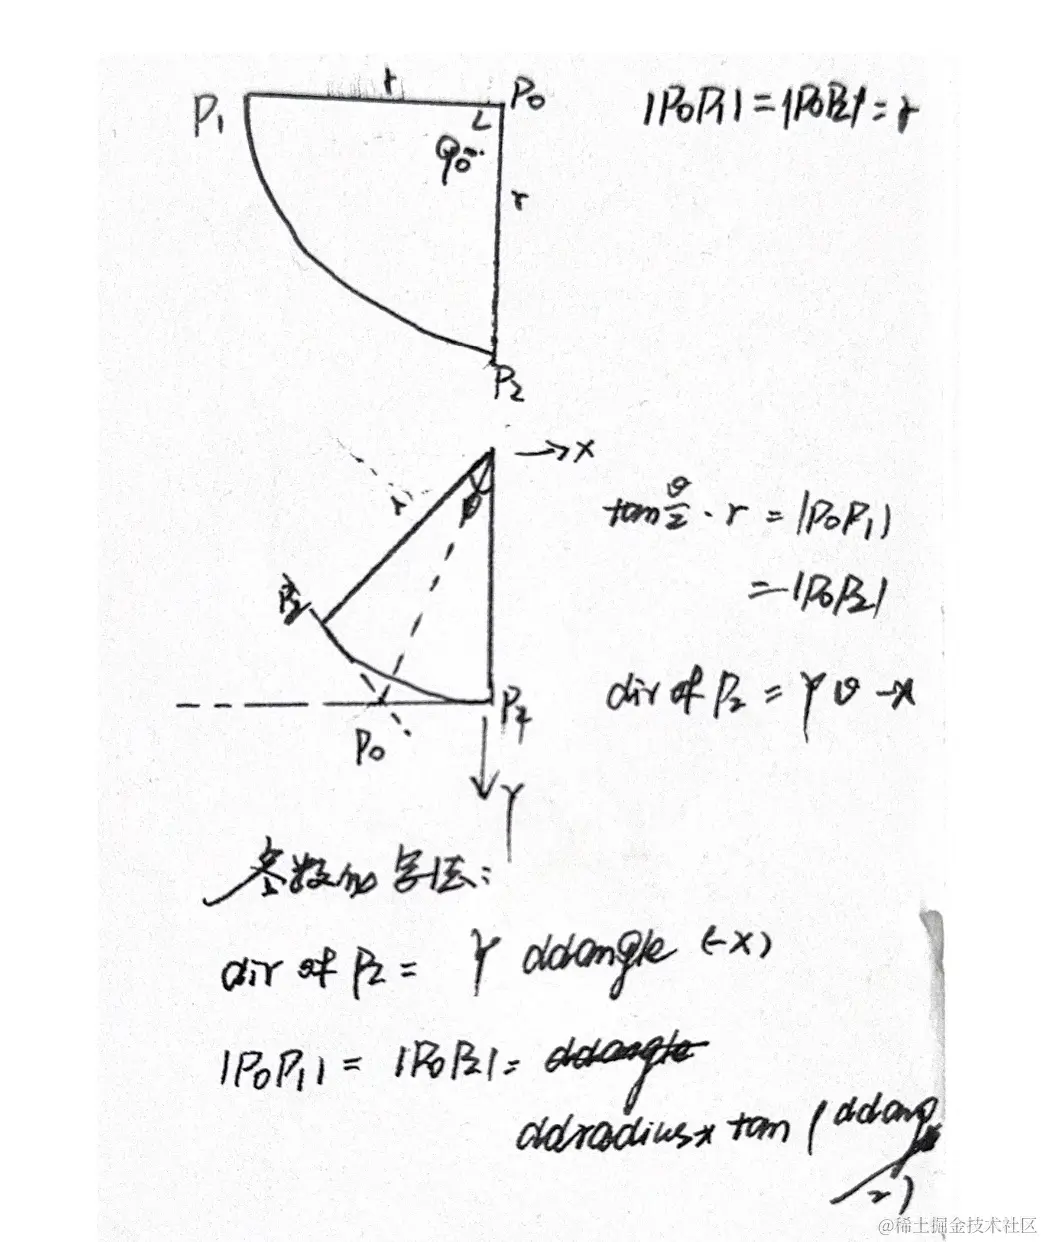 r
P₁
P₀
|P₀P₁| = |P₀P₂| = r
90°
r
P₂
→ X
r
θ
tan θ/2 · r = |P₀P₁|
= |P₀P₂|
P₂
dir of P₂ = Y θ -X
P₀
Y
参数的写法:
dir of P₂ = Y ddangle (-X)
|P₀P₁| = |P₀P₂| = ddangle
ddradius * tan (ddang
/2)
@稀土掘金技术社区